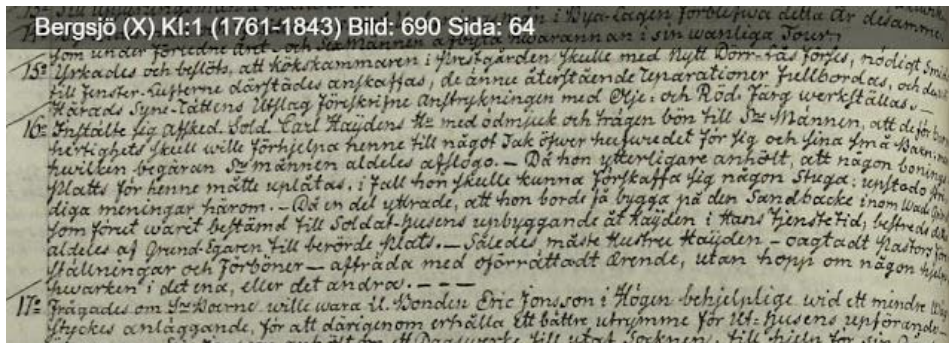 Bergsjö (X) KI:1 (1761-1843) Bild: 690 Sida: 64
som under förledne Året, och Sex Männen afbyta hwarannan i sin wanliga Tour.
15o Yrkades och beslöts, att kökskammaren i Prestgården skulle med Nytt Dörr-Lås förses, nödigt
till Fenster-Lufterne därstädes anskaffas, de ännu återstående reparationer fullbordas, och
Härads Syne-Rättens Utslag föreskrifne Anstrykningen med Olje- och Röd-Färg werkställas.
16o Instälte sig Afsked. Sold. Carl Haÿdens Hu med ödmjuk och trägen bön till Sne Männen, att de för
hertighets skull wille förhjelpa henne till något Tak öfwer hufwudet för sig och sina små Barn;
hwilken begäran Sne männen aldeles afslogo. — Då hon ytterligare anhölt, att någon
Platts för henne måtte uplåtas, i fall hon skulle kunna förskaffa sig någon Stuga; upstodo
diga meningar härom. — Då en del yttrade, att hon borde få bygga på den Sandbacke inom
som förut waret bestämd till Soldat-husens upbyggande åt Haÿden i Hans tjenstetid, bestreds
aldeles af Grund-Egaren till berörde Plats. — Således måste Hustru Haÿden – oagtadt Pastors
ställningar och Förböner — afträda med oförrättadt Ärende, utan hopp om någon hjelp
hwarken i det ena, eller det andra. — — —
17o Frågades om Sne Boerne wille wara U. Bonden Eric Jonsson i Högen behjelplige wid ett mindre
styckes anläggande, för att därigenom erhålla Ett bättre utrymme för Ut-husens upförande